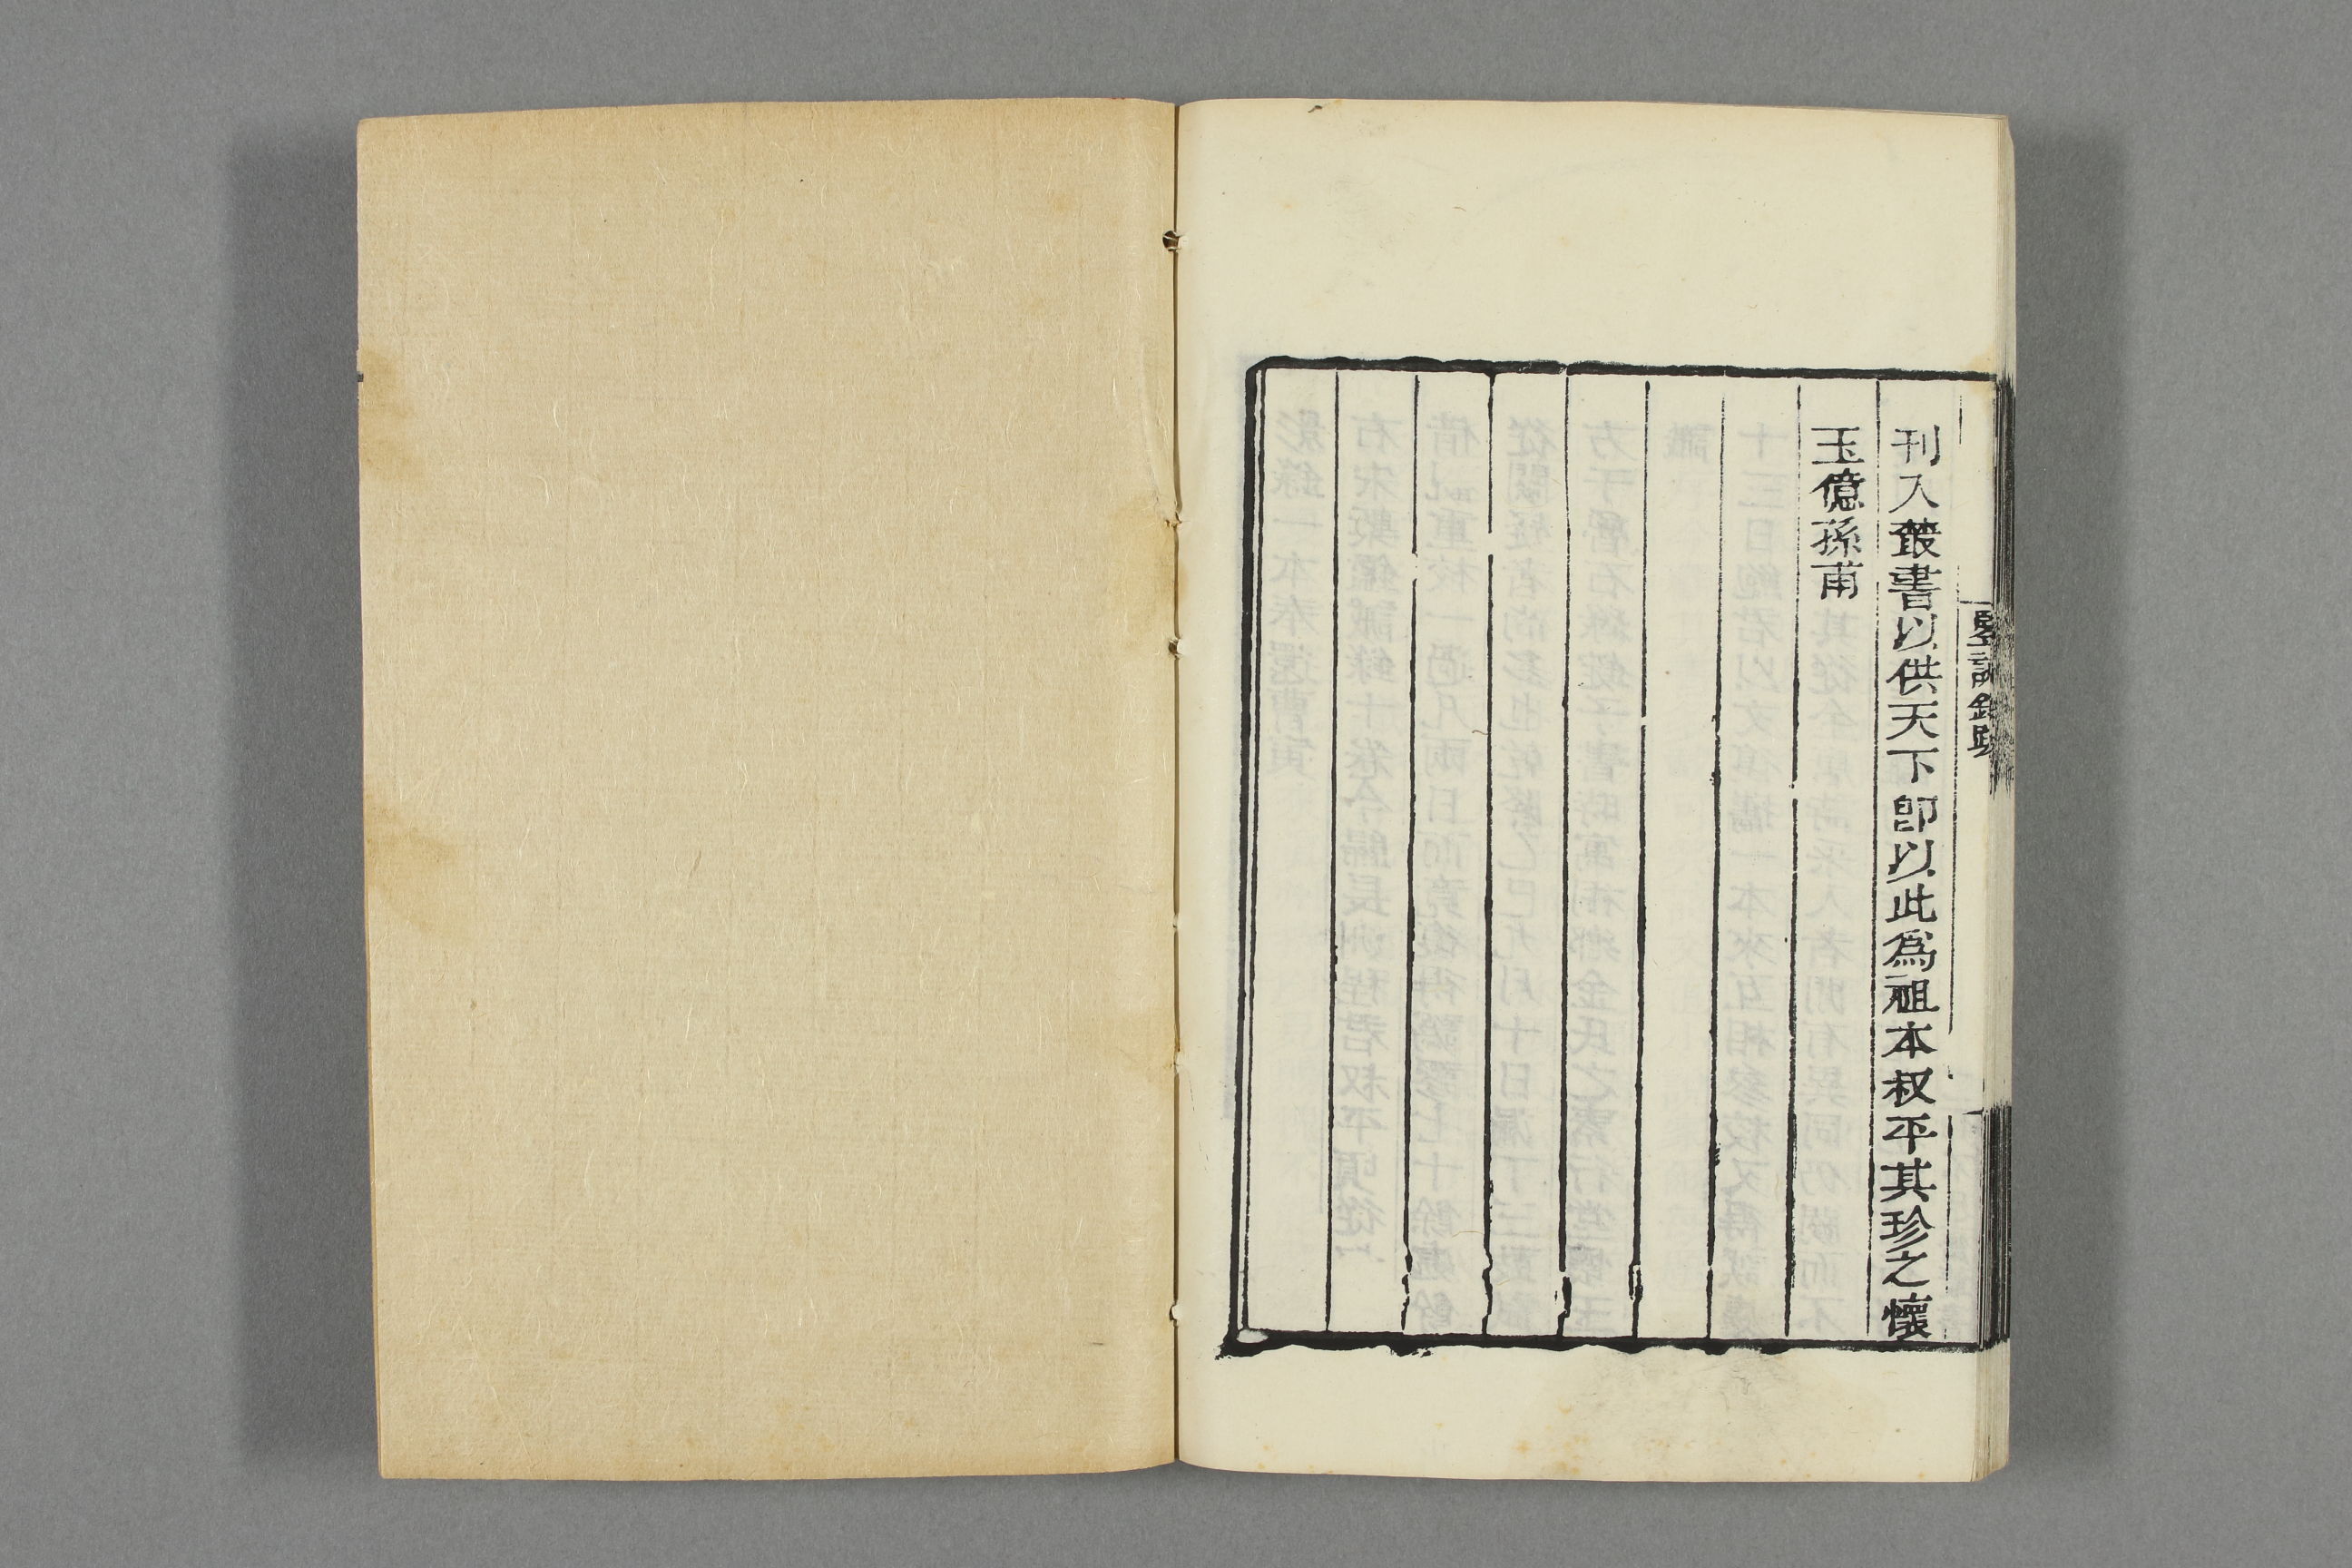 鑒誡錄跋
刊入叢書以供天下卽以此爲祖本叔平其珍之懷
玉億孫甫